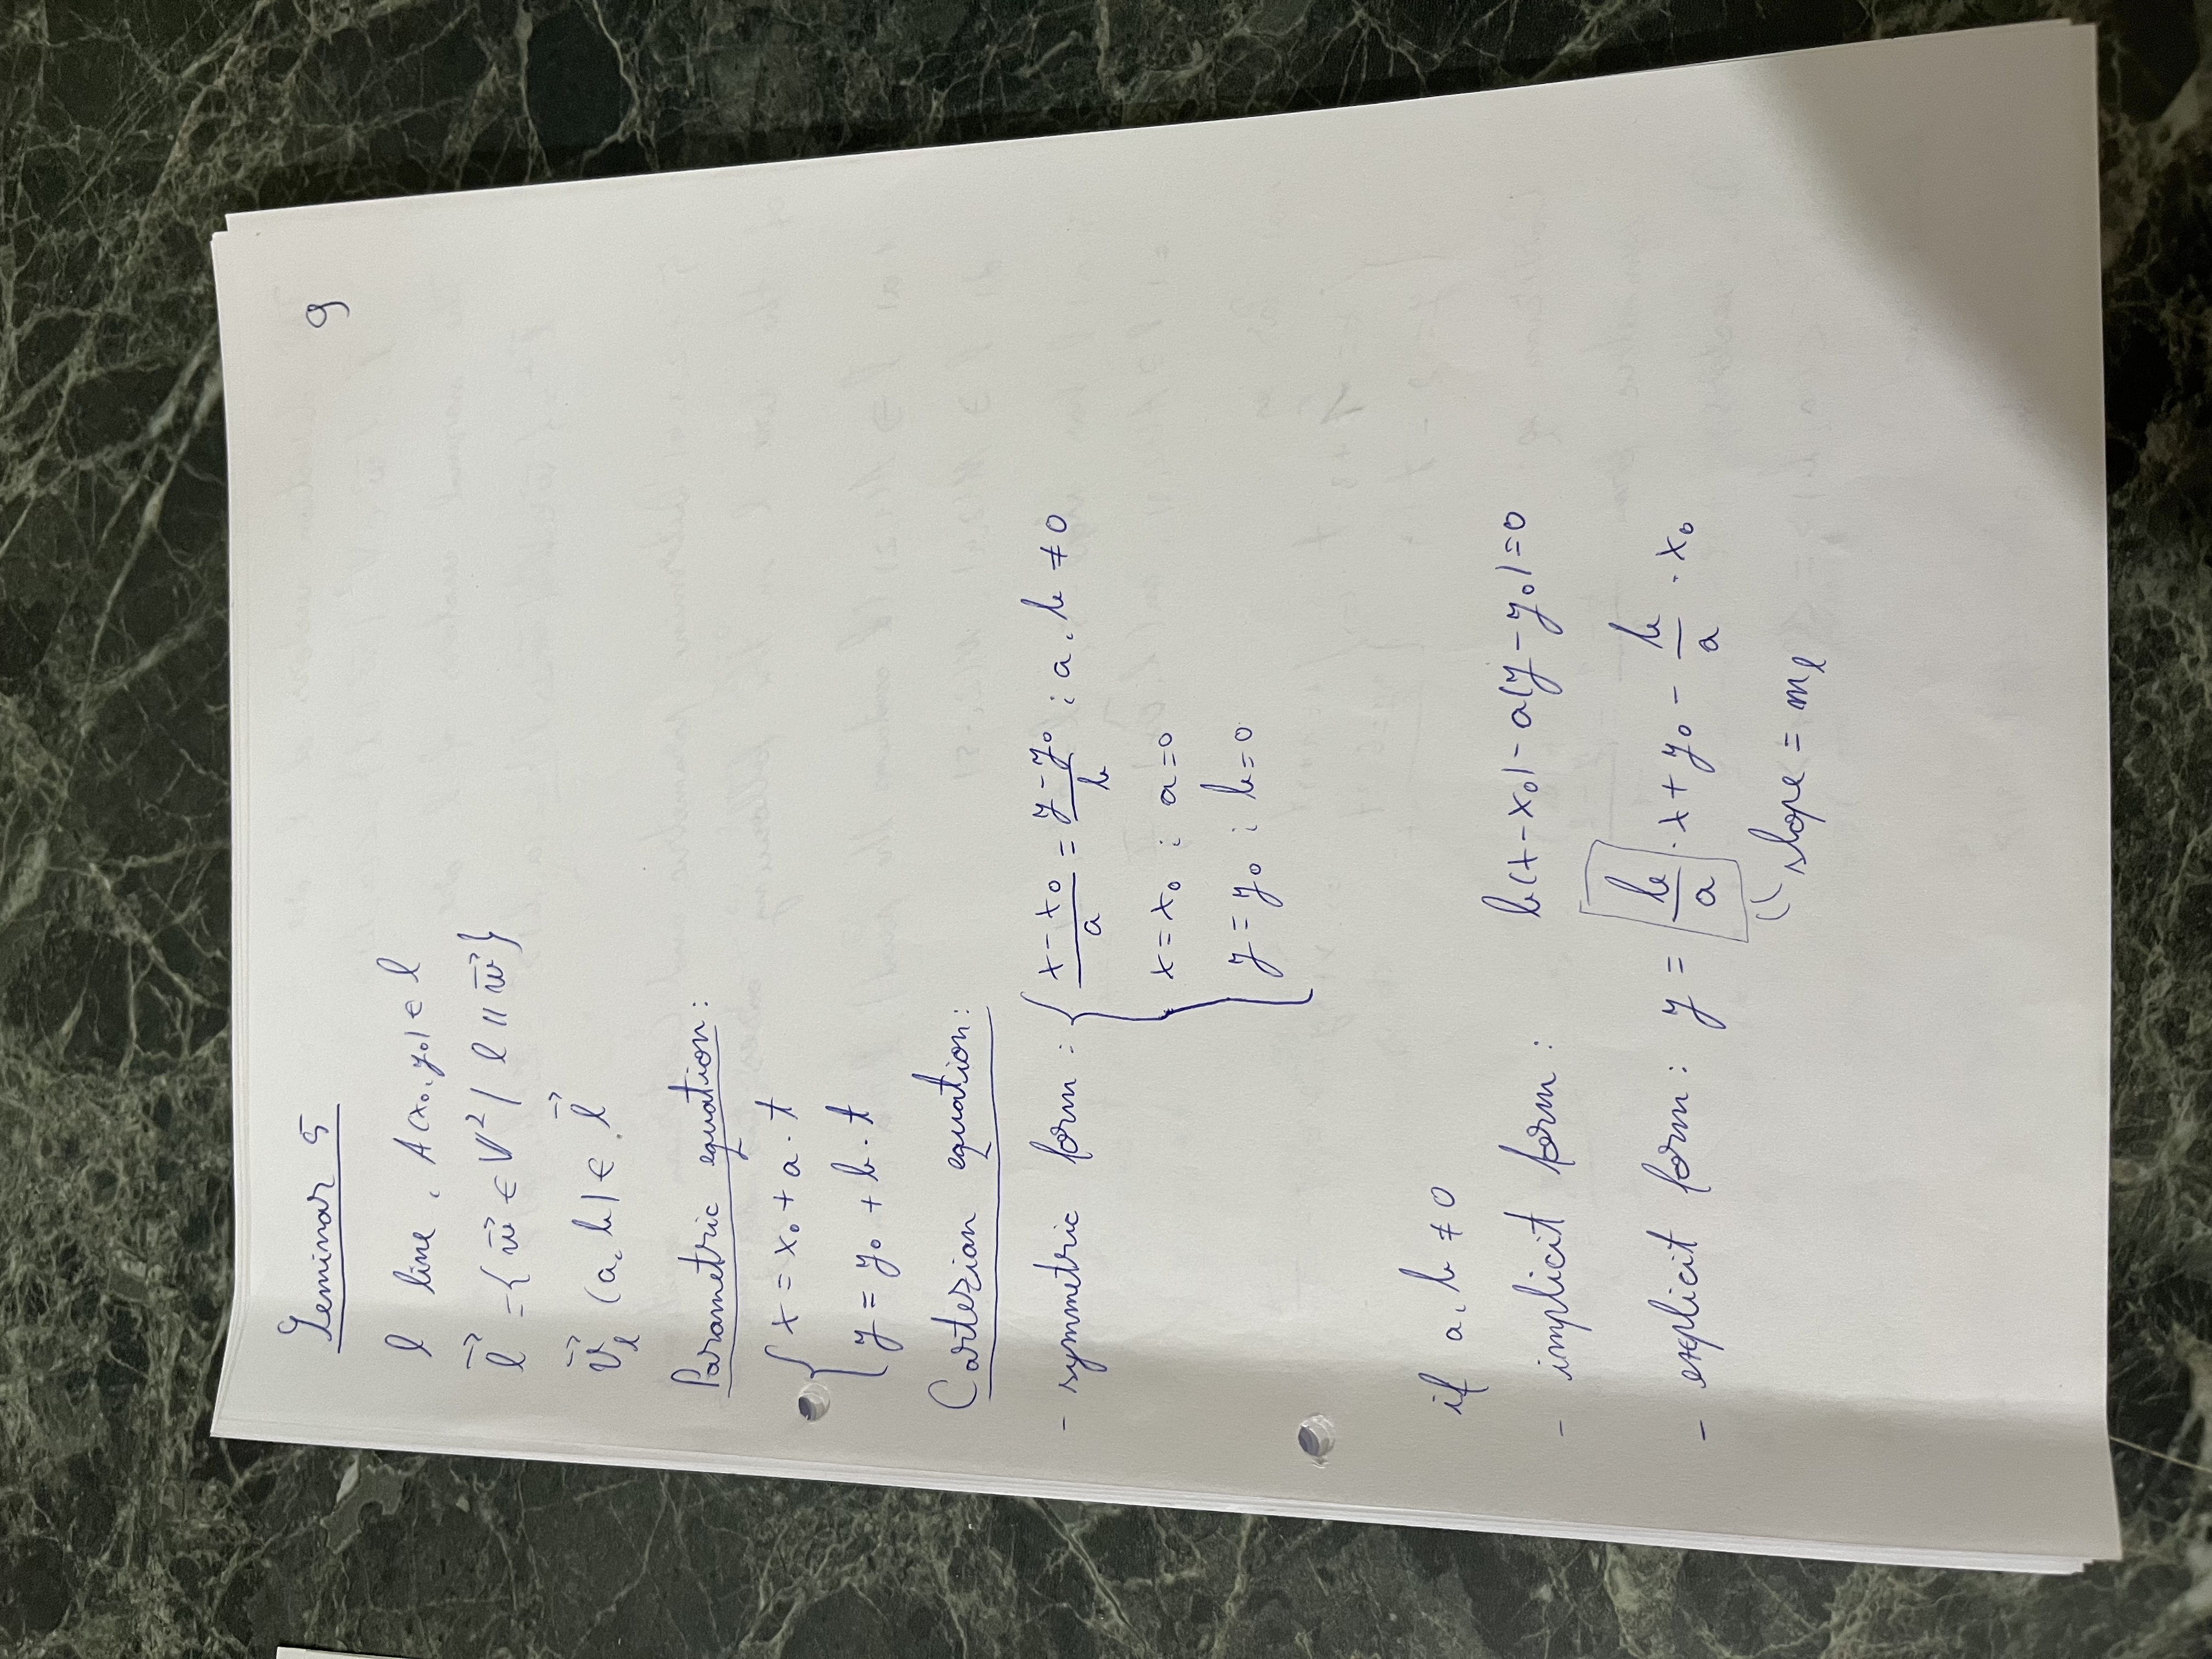 Seminar 5
9
l line, A(x₀, y₀) ∈ l
l⃗ = { w⃗ ∈ V² / l ∥ w⃗ }
v⃗ₗ (a, b) ∈ l⃗
Parametric equation:
{ x = x₀ + a · t
y = y₀ + b · t
Cartezian equation:
- symmetric form : { (x - x₀)/a = (y - y₀)/b ; a, b ≠ 0
x = x₀ ; a = 0
y = y₀ ; b = 0
if a, b ≠ 0
- implicit form : b(x - x₀) - a(y - y₀) = 0
- explicit form : y = b/a · x + y₀ - b/a · x₀
slope = mₗ